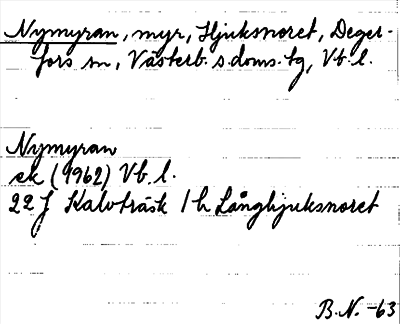 Nymyran, myr, Hjuksnoret, Deger-
fors sn, Västerb. s doms. tg, Vb. l.
Nymyran
ek (1962) Vb. l.
22 J Kalvträsk 1 h Långhjuksnoret
B. N. -63